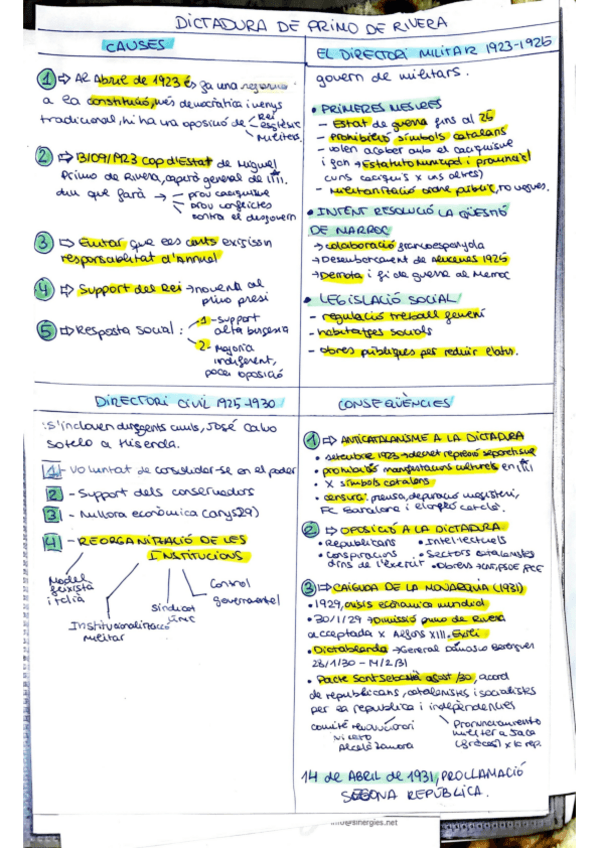 DICTADURA DE PRIMO DE RIVERA
CAUSES
1 ⇒ Al Abril de 1923 és ja una
a la constitució, més democràtica i menys
tradicional, hi ha una oposició de - Rei
- església
- Militars
2 ⇒ 13/09/1923 Cop d'Estat de Miguel
Primo de Rivera, capità general de
diu que farà → - prou caciquisme
- prou conflictes
contra el desgovern
3 ⇒ Evitar que les corts exigissin
responsabilitat d'Annual
4 ⇒ Support del Rei → nomena al
primo presi
5 ⇒ Resposta social: 1 - support
alta burgesia
2 - Majoria
indiferent,
poca oposició
EL DIRECTORI MILITAR 1923-1925
govern de militars.
• PRIMERES MESURES
- Estat de guerra fins al 26
- Prohibició símbols catalans
- volen acabar amb el caciquisme
i fan → Estatuto Municipal i provincial
(uns caciquis x uns altres)
- Militarització ordre públic, no vagues.
• INTENT RESOLUCIÓ LA QÜESTIÓ
DE MARROC
→ colaboració francoespanyola
→ Desembarcament de 1925
→ Derrota i fi de guerra al Marroc
• LEGISLACIÓ SOCIAL
- regulació treball femení
- habitatges socials
- obres públiques per reduir l'atur.
DIRECTORI CIVIL 1925-1930
: S'inclouen dirigents civils, José Calvo
Sotelo a Hisenda.
1 - Voluntat de consolidar-se en el poder
2 - Support dels conservadors
3 - Millora econòmica (anys 20)
4 - REORGANITZACIÓ DE LES
INSTITUCIONS
Model
feixista
italià
Institucionalització
militar
Sindicat
únic
Control
governamental
CONSEQÜÈNCIES
1 ⇒ ANTICATALANISME A LA DICTADURA
• setembre 1923 → decret repressió separatisme
• prohibició manifestacions culturals en
• X símbols catalans
• censura: premsa, depuració magisteri,
FC Barcelona i
2 ⇒ OPOSICIÓ A LA DICTADURA
• Republicans • Intel·lectuals
• conspiracions • Sectors catalanistes
dins de l'exèrcit • Obrers: CNT, PSOE, PCE
3 ⇒ CAIGUDA DE LA MONARQUIA (1931)
• 1929, crisis econòmica mundial
• 30/1/29 → Dimissió primo de Rivera
acceptada x Alfons XIII. Exili
• Dictablanda → General Dámaso Berenguer
28/1/30 - 14/2/31
• Pacte Sant Sebastià agost /30, acord
de republicans, catalanistes i socialistes
per la republica i independències
comitè revolucionari
Niceto
Alcalá Zamora
Pronunciamiento
militar a Jaca
(fracàs) x la rep.
14 de ABRIL de 1931, PROCLAMACIÓ
SEGONA REPÚBLICA.
info@sinergies.net